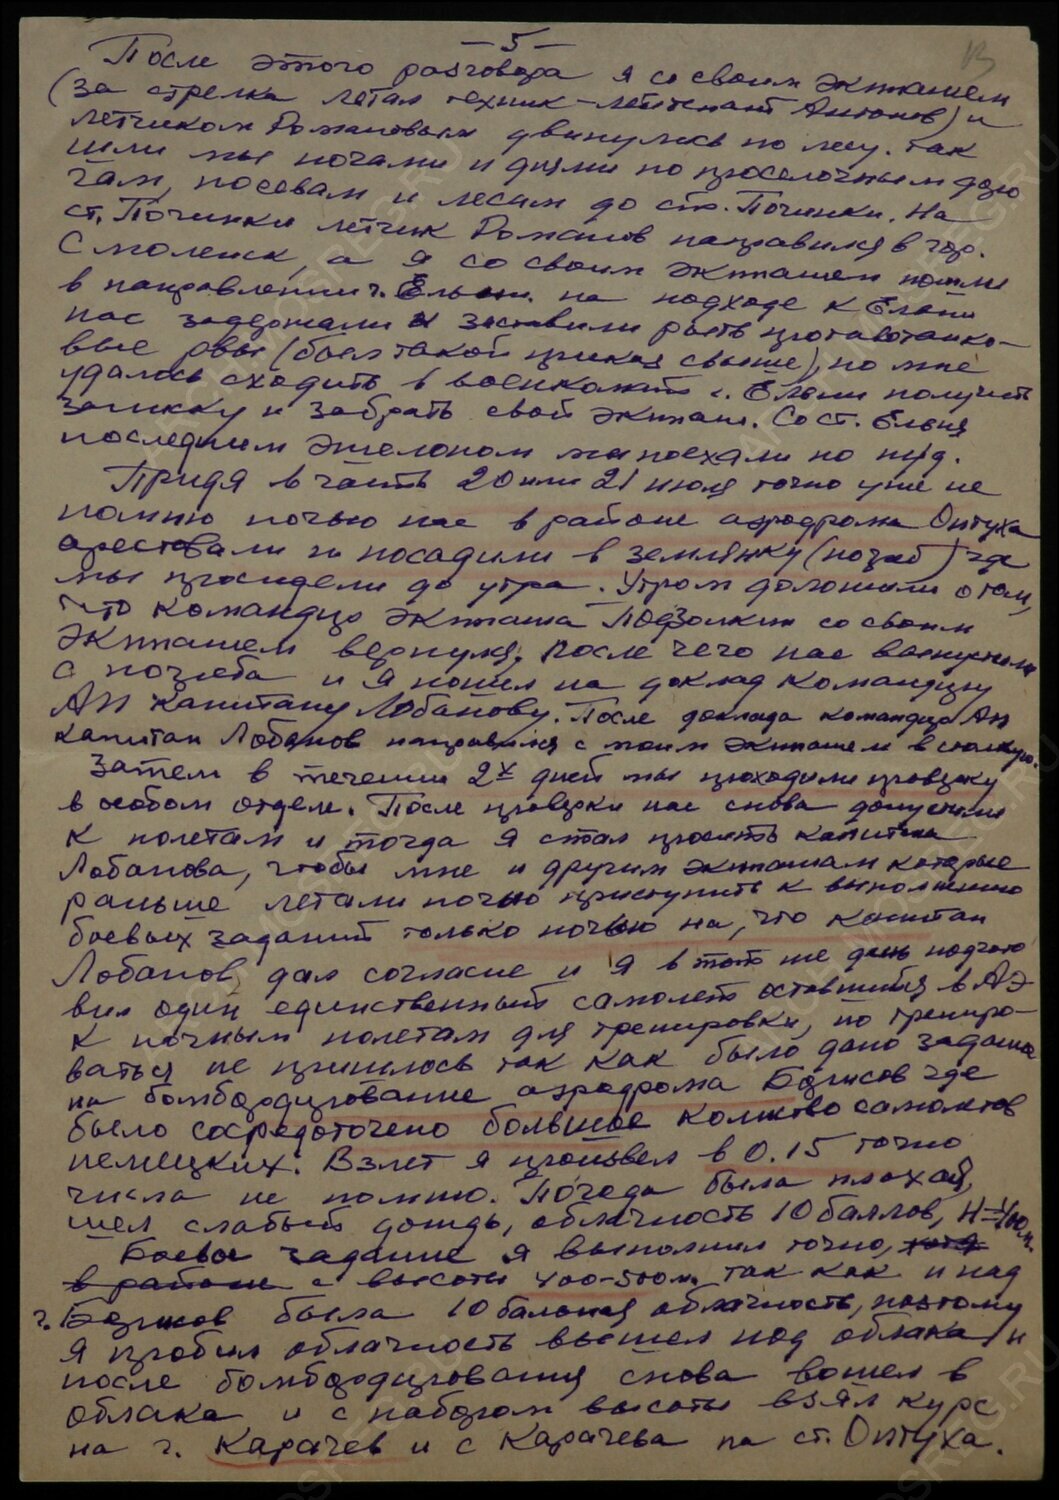 — 5 —
13
После этого разговора я со своим экипажем
(за стрелка летал техник-лейтенант Антонов) и
летчиком Романовым двинулись по лесу. так
шли мы ночами и днями по проселочным доро
гам, посевам и лесам до ст. Починки. На
ст. Починки летчик Романов направился в гор.
Смоленск, а я со своим экипажем пошли
в направлении г. Ельни. на подходе к Ельни
нас задержали и заставили рыть противотанко-
вые рвы (был такой приказ свыше), но мне
удалось сходить в военкомат г. Ельни получить
записку и забрать свой экипаж. Со ст. Ельня
последним эшелоном мы поехали по ж/д.
Придя в часть 20 или 21 июля точно уже не
помню ночью нас в районе аэродрома Оптуха
арестовали и посадили в землянку (погреб) где
мы просидели до утра. Утром доложили о том,
что командир экипажа Подзолкин со своим
экипажем вернулся. После чего нас выпустили
с погреба и я пошел на доклад командиру
АП капитану Лобанову. После доклада командир АП
капитан Лобанов направился с моим экипажем в
Затем в течении 2х дней мы проходили проверку
в особом отделе. После проверки нас снова допустили
к полетам и тогда я стал просить капитана
Лобанова, чтобы мне и другим экипажам которые
раньше летали ночью приступить к выполнению
боевых заданий только ночью на, что капитан
Лобанов дал согласие и я в тот же день подгото
вил один единственный самолет оставшийся в АЭ
к ночным полетам для тренировки, но трениро-
ваться не пришлось так как было дано задание
на бомбордирование аэродрома Борисов где
было сосредоточено большое колич-во самолетов
немецких. Взлет я произвел в 0.15 точно
числа не помню. Погода была плохая,
шел слабый дождь, облачность 10 баллов, Н-400м.
Боевое задание я выполнил точно, хотя
в районе с высоты 400-500м. так как и над
г. Борисов была 10 бальная облачность, поэтому
я пробил облачность вышел под облака и
после бомбордирования снова вошел в
облака и с набором высоты взял курс
на г. Карачев и с Карачева на ст. Оптуха.